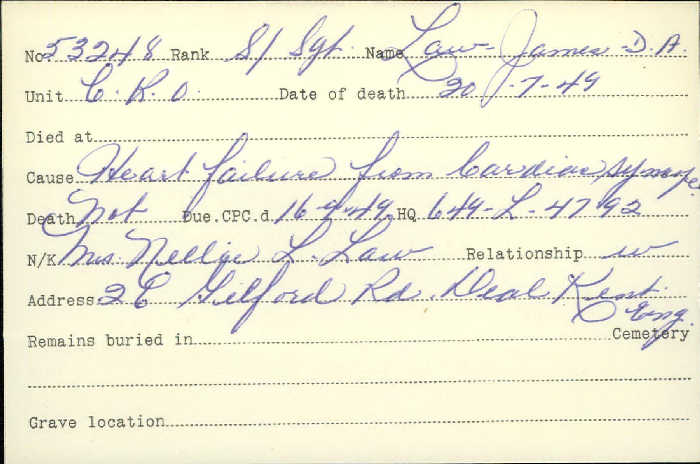 No 53248 Rank S/Sgt. Name Law- James -D.A.
Unit C.R.O. Date of death 20-7-49
Died at
Cause Heart failure from Cardiac syncope
Death Not Due.CPC.d. 16-9-49 HQ 649-L-4792
N/K Mrs. Nellie L. Law Relationship w
Address 26 Gilford Rd. Deal Kent Eng.
Remains buried in Cemetery
Grave location